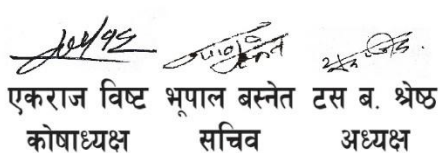 एकराज विष्ट भूपाल बस्नेत टस ब. श्रेष्ठ
कोषाध्यक्ष सचिव अध्यक्ष